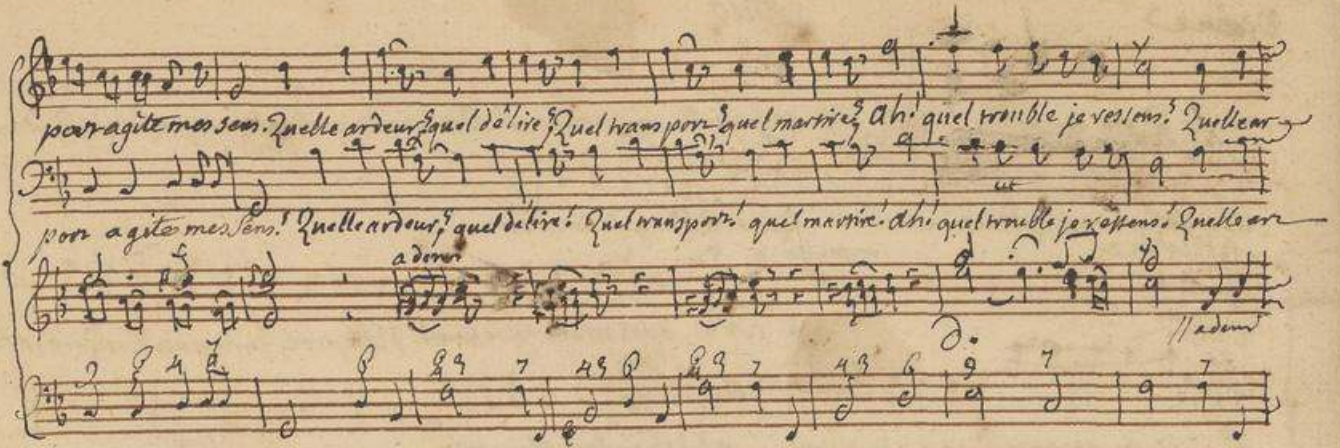 port agite mes sens. Quelle ardeur! quel délire! Quel transport! quel martire! Ah! quel trouble je ressens! Quelle ar
port agite mes sens! Quelle ardeur! quel délire! Quel transport! quel martire! Ah! quel trouble je ressens! Quelle ar
a demi
a demi
9 6 4 6 6 4 3 7 4 3 6 6 4 3 7 4 3 6 9 7 7